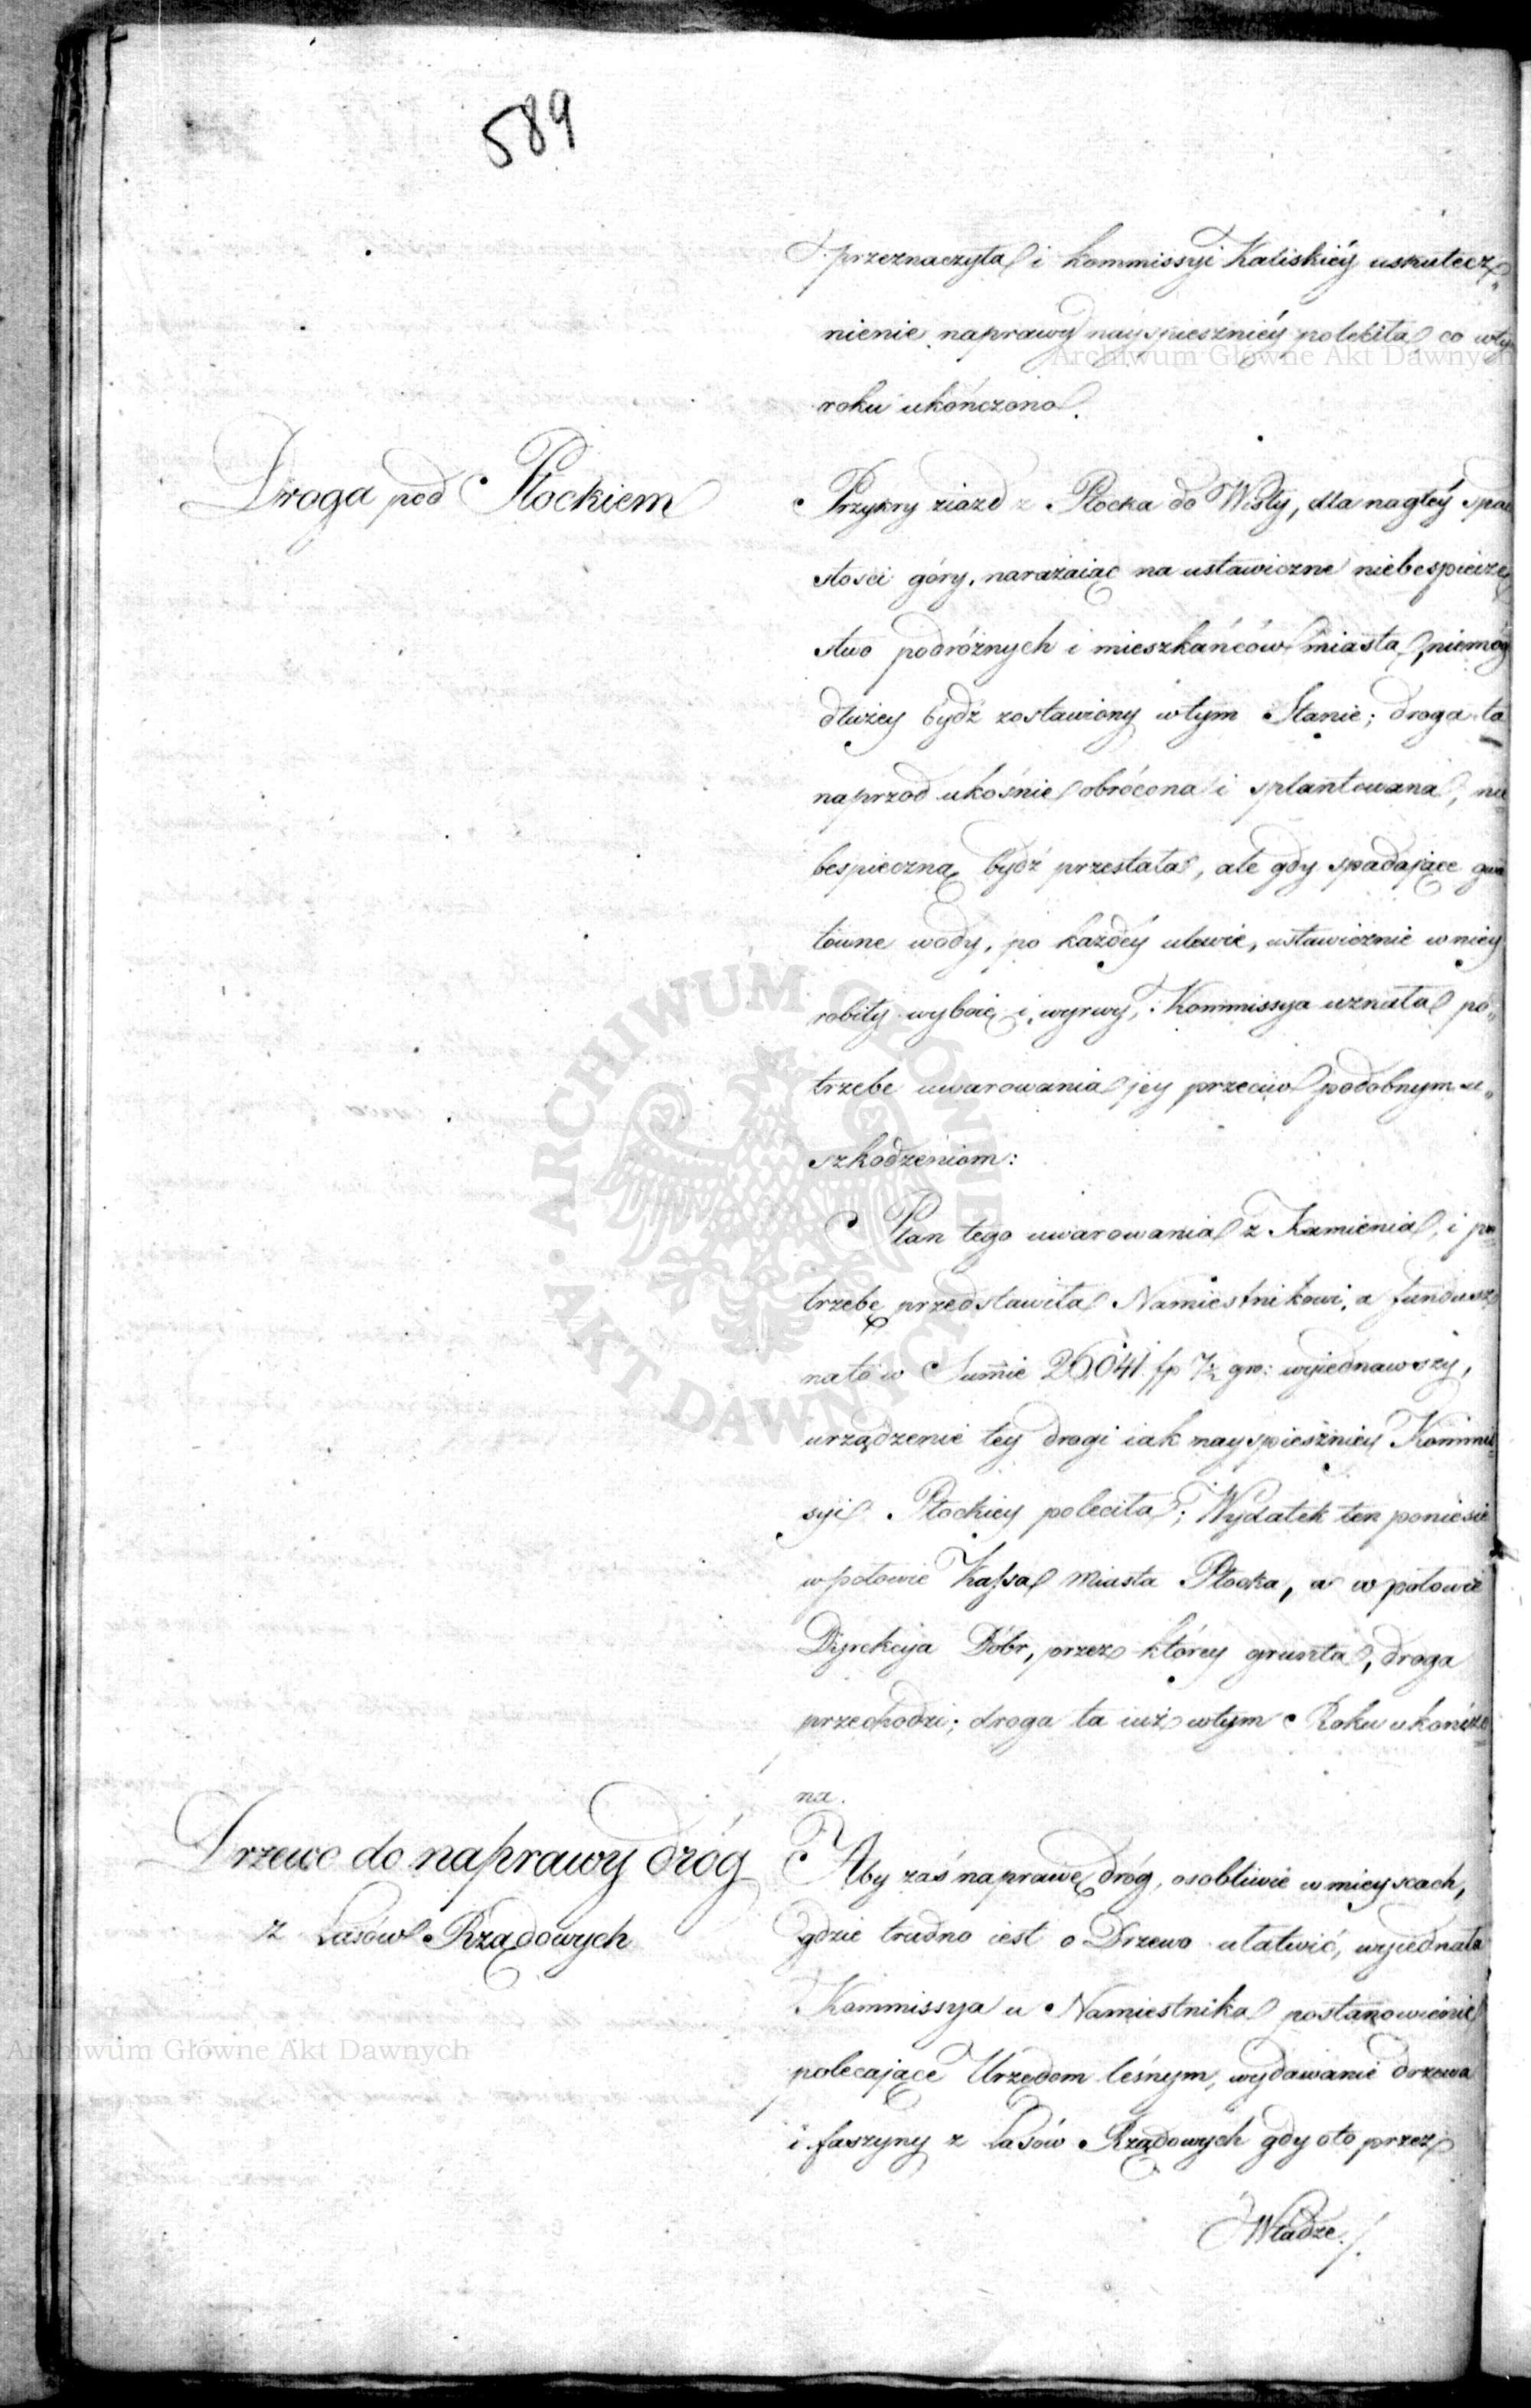 589
przeznaczyła i kommissyi Kaliskiéy uskutecz„
nienie naprawy nayspieszniéy poleciła, co wtym
roku ukończono.
Droga pod Płockiem
Przykry ziazd z Płocka do Wisły, dla nagłéy spa„
stosci góry, narażaiąc na ustawiczne niebespieczeń
stwo podróżnych i mieszkańców miasta, niemógł
dłużey bydź zostawiony wtym Stanie; droga ta
naprzod ukośnie obrócona i splantowana, nie
bespieczną bydź przestała, ale gdy spadające gwał
towne wody, po każdéy ulewie, ustawicznie w niey
robiły wyboie i wyrwy, Kommissya uznała po„
trzebe uwarowania jey przeciw podobnym u„
szkodzeniom:
Plan tego uwarowania z Kamienia, i po
trzebę przedstawiła Namiestnikowi, a fundusz
nato w Summie 26,041 fp 7½ gr: wyiednawszy,
urządzenie tey drogi iak nayspieszniey Kommis
syi Płockiey poleciła; Wydatek ten poniesie
w połowie Kassa Miasta Płocka, a w połowie
Dyrekcya Dóbr, przez którey grunta, droga
przechodzi; droga ta iuż wtym Roku ukończo
na.
Drzewo do naprawy dróg
z Lasów Rządowych
Aby zaś naprawę dróg, osobliwie w mieyscach,
gdzie trudno iest o Drzewo ułatwić, wyiednała
Kommissya u Namiestnika postanowienie
polecające Urzędom leśnym, wydawanie drzewa
i faszyny z Lasów Rządowych gdy oto przez
Władze./.
Archiwum Główne Akt Dawnych
Archiwum Główne Akt Dawnych
• ARCHIWUM GŁÓWNE • AKT DAWNYCH